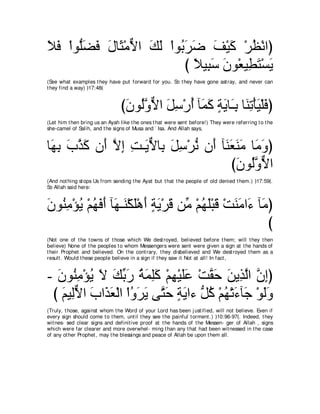 (انْظُرْ كَيْفَ ضَرَبُواْ لَكَ الاٌّمْثَالَ فَضَلُّواْ فَلاَ
يَسْتَطِيعُونَ سَبِيلاً )
(See what examples they have put forward for you. So they have gone astray, and never can
they find a way) )17:48(
(فَلْيَأْتِنَا بِـَايَةٍ كَمَآ أُرْسِلَ الاٌّوَّلُونَ)
(Let him then bring us an Ayah like the ones that were sent before!) They were referring to the
she-camel of Salih, and the signs of Musa and ` Isa. And Allah says,
(وَمَا مَنَعَنَآ أَن نُّرْسِلَ بِالاٌّيَـتِ إِلاَّ أَن كَذَّبَ بِهَا
الاٌّوَّلُونَ)
(And nothing stops Us from sending the Ayat but that the people of old denied them.) )17:59(,
So Allah said here:
(مَآ ءَامَنَتْ قَبْلَهُمْ مِّن قَرْيَةٍ أَهْلَكْنَـهَآ أَفَهُمْ يُؤْمِنُونَ
)
(Not one of the towns of those which We destroyed, believed before them; will they then
believe) None of the peoples to whom Messengers were sent were given a sign at the hands of
their Prophet and believed. On the contrary, they disbelieved and We destroyed them as a
result. Would these people believe in a sign if they saw it Not at all! In fact,
(إِنَّ الَّذِينَ حَقَّتْ عَلَيْهِمْ كَلِمَةُ رَبِّكَ لاَ يُؤْمِنُونَ -
وَلَوْ جَآءَتْهُمْ كُلُّ ءايَةٍ حَتَّى يَرَوُاْ الْعَذَابَ الاٌّلِيمَ )
(Truly, those, against whom the Word of your Lord has been justified, will not believe. Even if
every sign should come to them, until they see the painful torment.) )10:96-97(. Indeed, they
witnes- sed clear signs and definitive proof at the hands of the Messen- ger of Allah , signs
which were far clearer and more overwhel- ming than any that had been witnessed in the case
of any other Prophet, may the blessings and peace of Allah be upon them all.